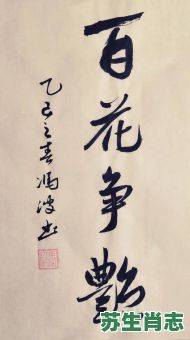 百花争艷
乙巳之春冯波书
苏生肖志